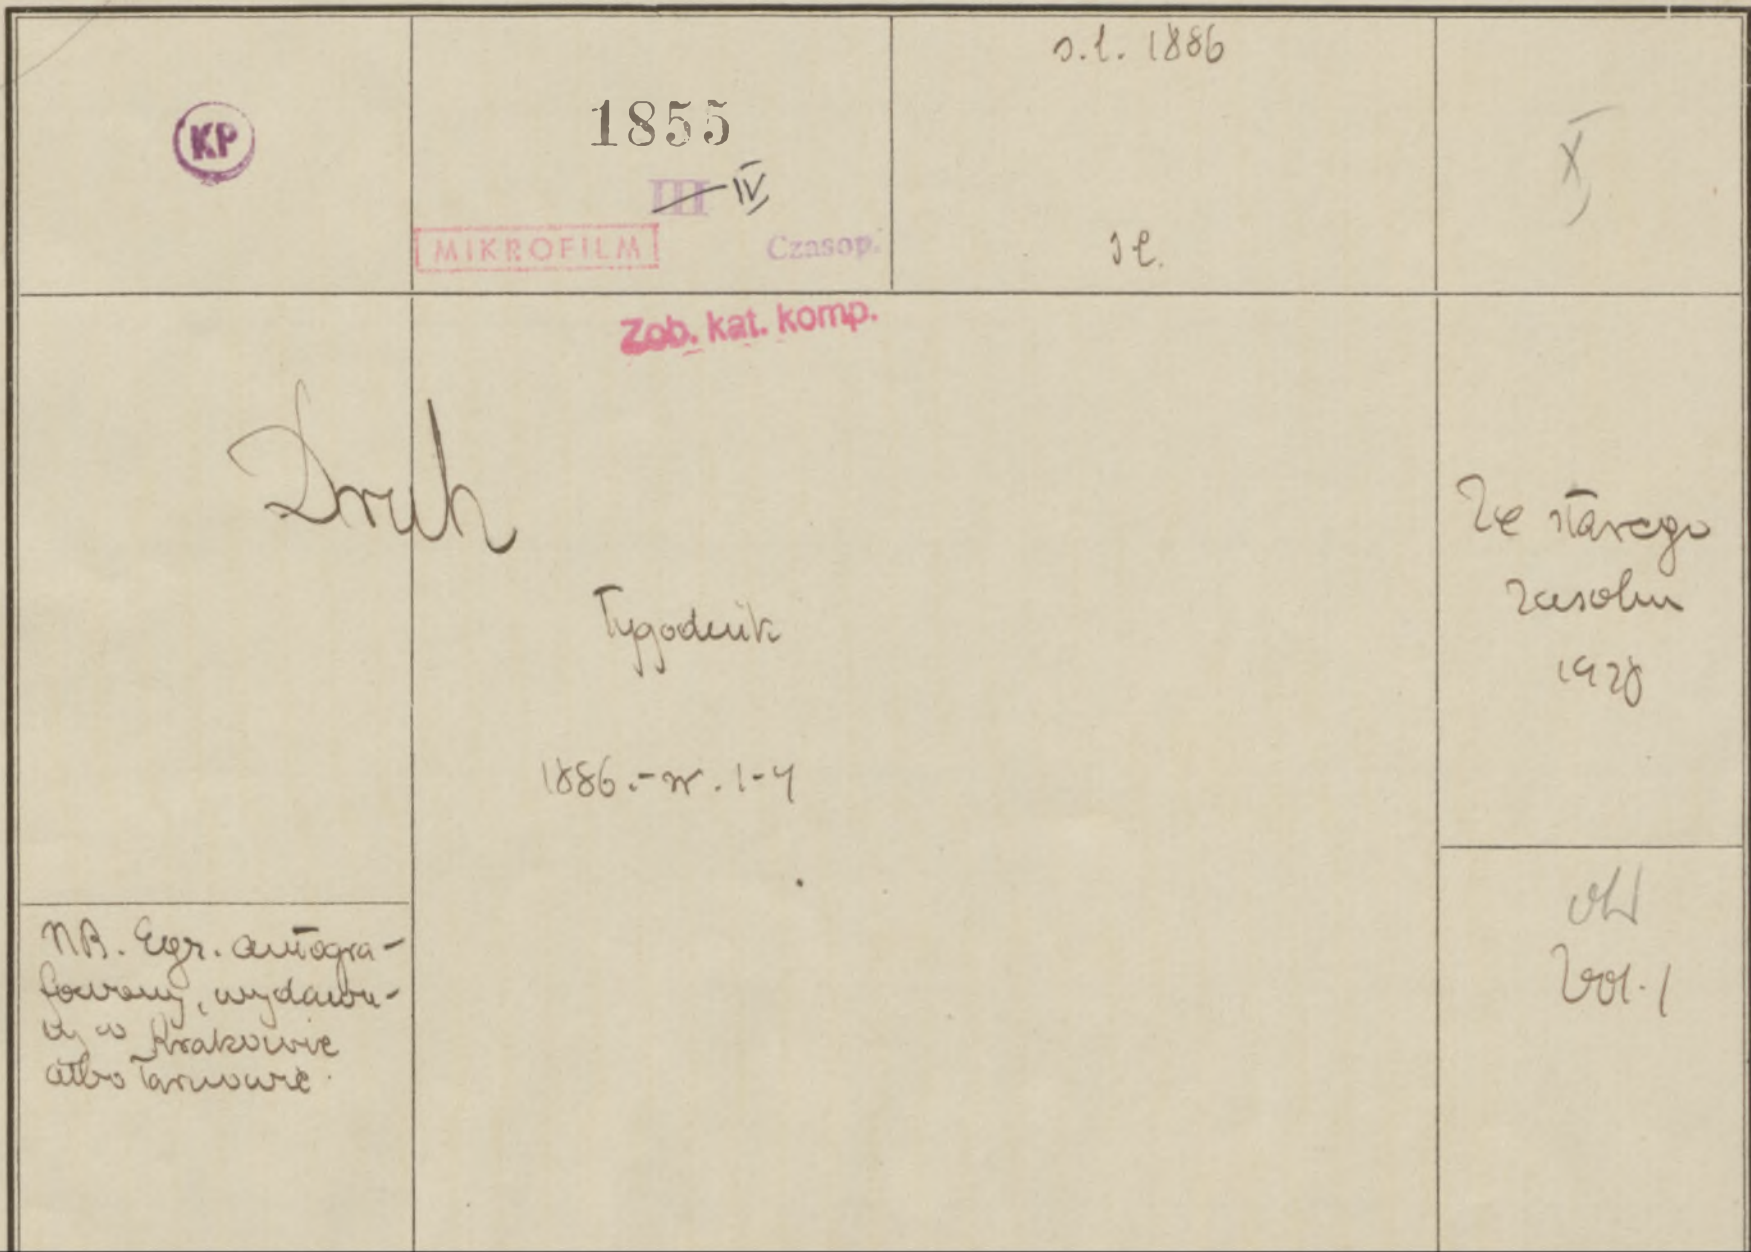 KP
1855
III IV
MIKROFILM
Czasop.
s.l. 1886
X
Zob. kat. komp.
Druh
Tygodnik
1886.-nr. 1-4
Ze starego
zasobu
1928
NB. Egz. autogra-
fowany, wydawa-
ny w Krakowie
albo Tarnowie.
Vol. 1